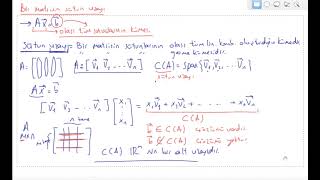 Bir matrisin sütun uzayı
→ A x⃗ = b⃗
→ olası tüm sonuçların kümesi
Sütun uzayı = Bir matrisin sütunlarının olası tüm lin. komb. oluşturduğu kümedir
germe kümesidir.
A = [ ] A = [ v⃗₁ v⃗₂ ... v⃗ₙ ] C(A) = span{ v⃗₁, v⃗₂, ... v⃗ₙ }
sütun uzayı
A x⃗ = b⃗
[ v⃗₁ v⃗₂ . . . . v⃗ₙ ] [ x₁ ⋮ xₙ ] = x₁v⃗₁ + x₂v⃗₂ + . . . . + xₙv⃗ₙ
C(A)
A n tane
m×n b⃗ ∈ C(A) çözümü vardır.
b⃗ ∉ C(A) çözümü yoktur.
C(A) ℝᵐ 'nin bir alt uzayıdır.